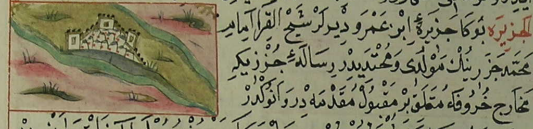 الجزيره بوكا جزيرهٔ ابن عمر ديرلر شيخ القرا امام
محمد جزرينك مولدى ومحتديدر رسالهٔ جزريكه
مخارج حروفه متعلق بر مقبول مقدمه در انوكدر